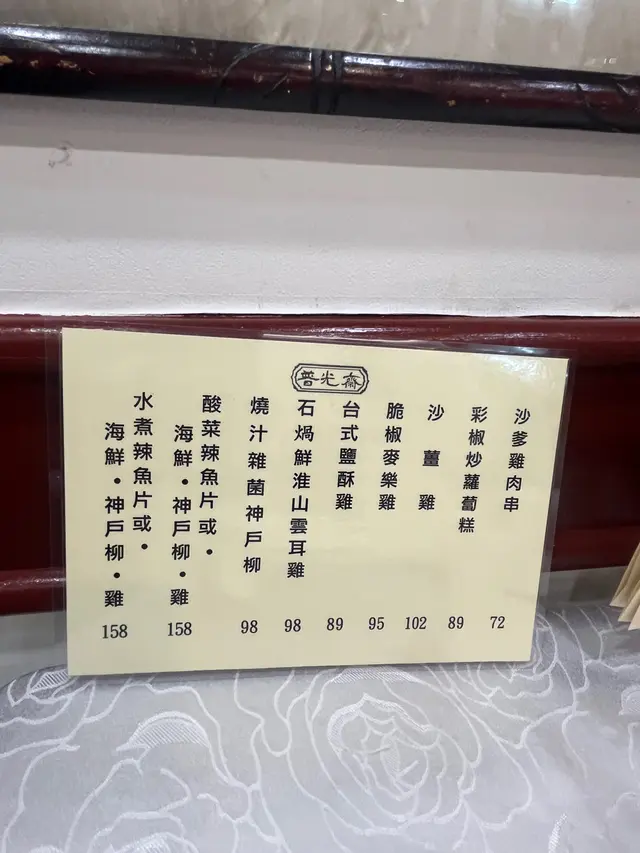 普光齋
沙爹雞肉串
72
彩椒炒蘿蔔糕
89
沙薑雞
102
脆椒麥樂雞
95
台式鹽酥雞
89
石焗鮮淮山雲耳雞
98
燒汁雜菌神戶柳
98
酸菜辣魚片或•
海鮮•神戶柳•雞
158
水煮辣魚片或•
海鮮•神戶柳•雞
158